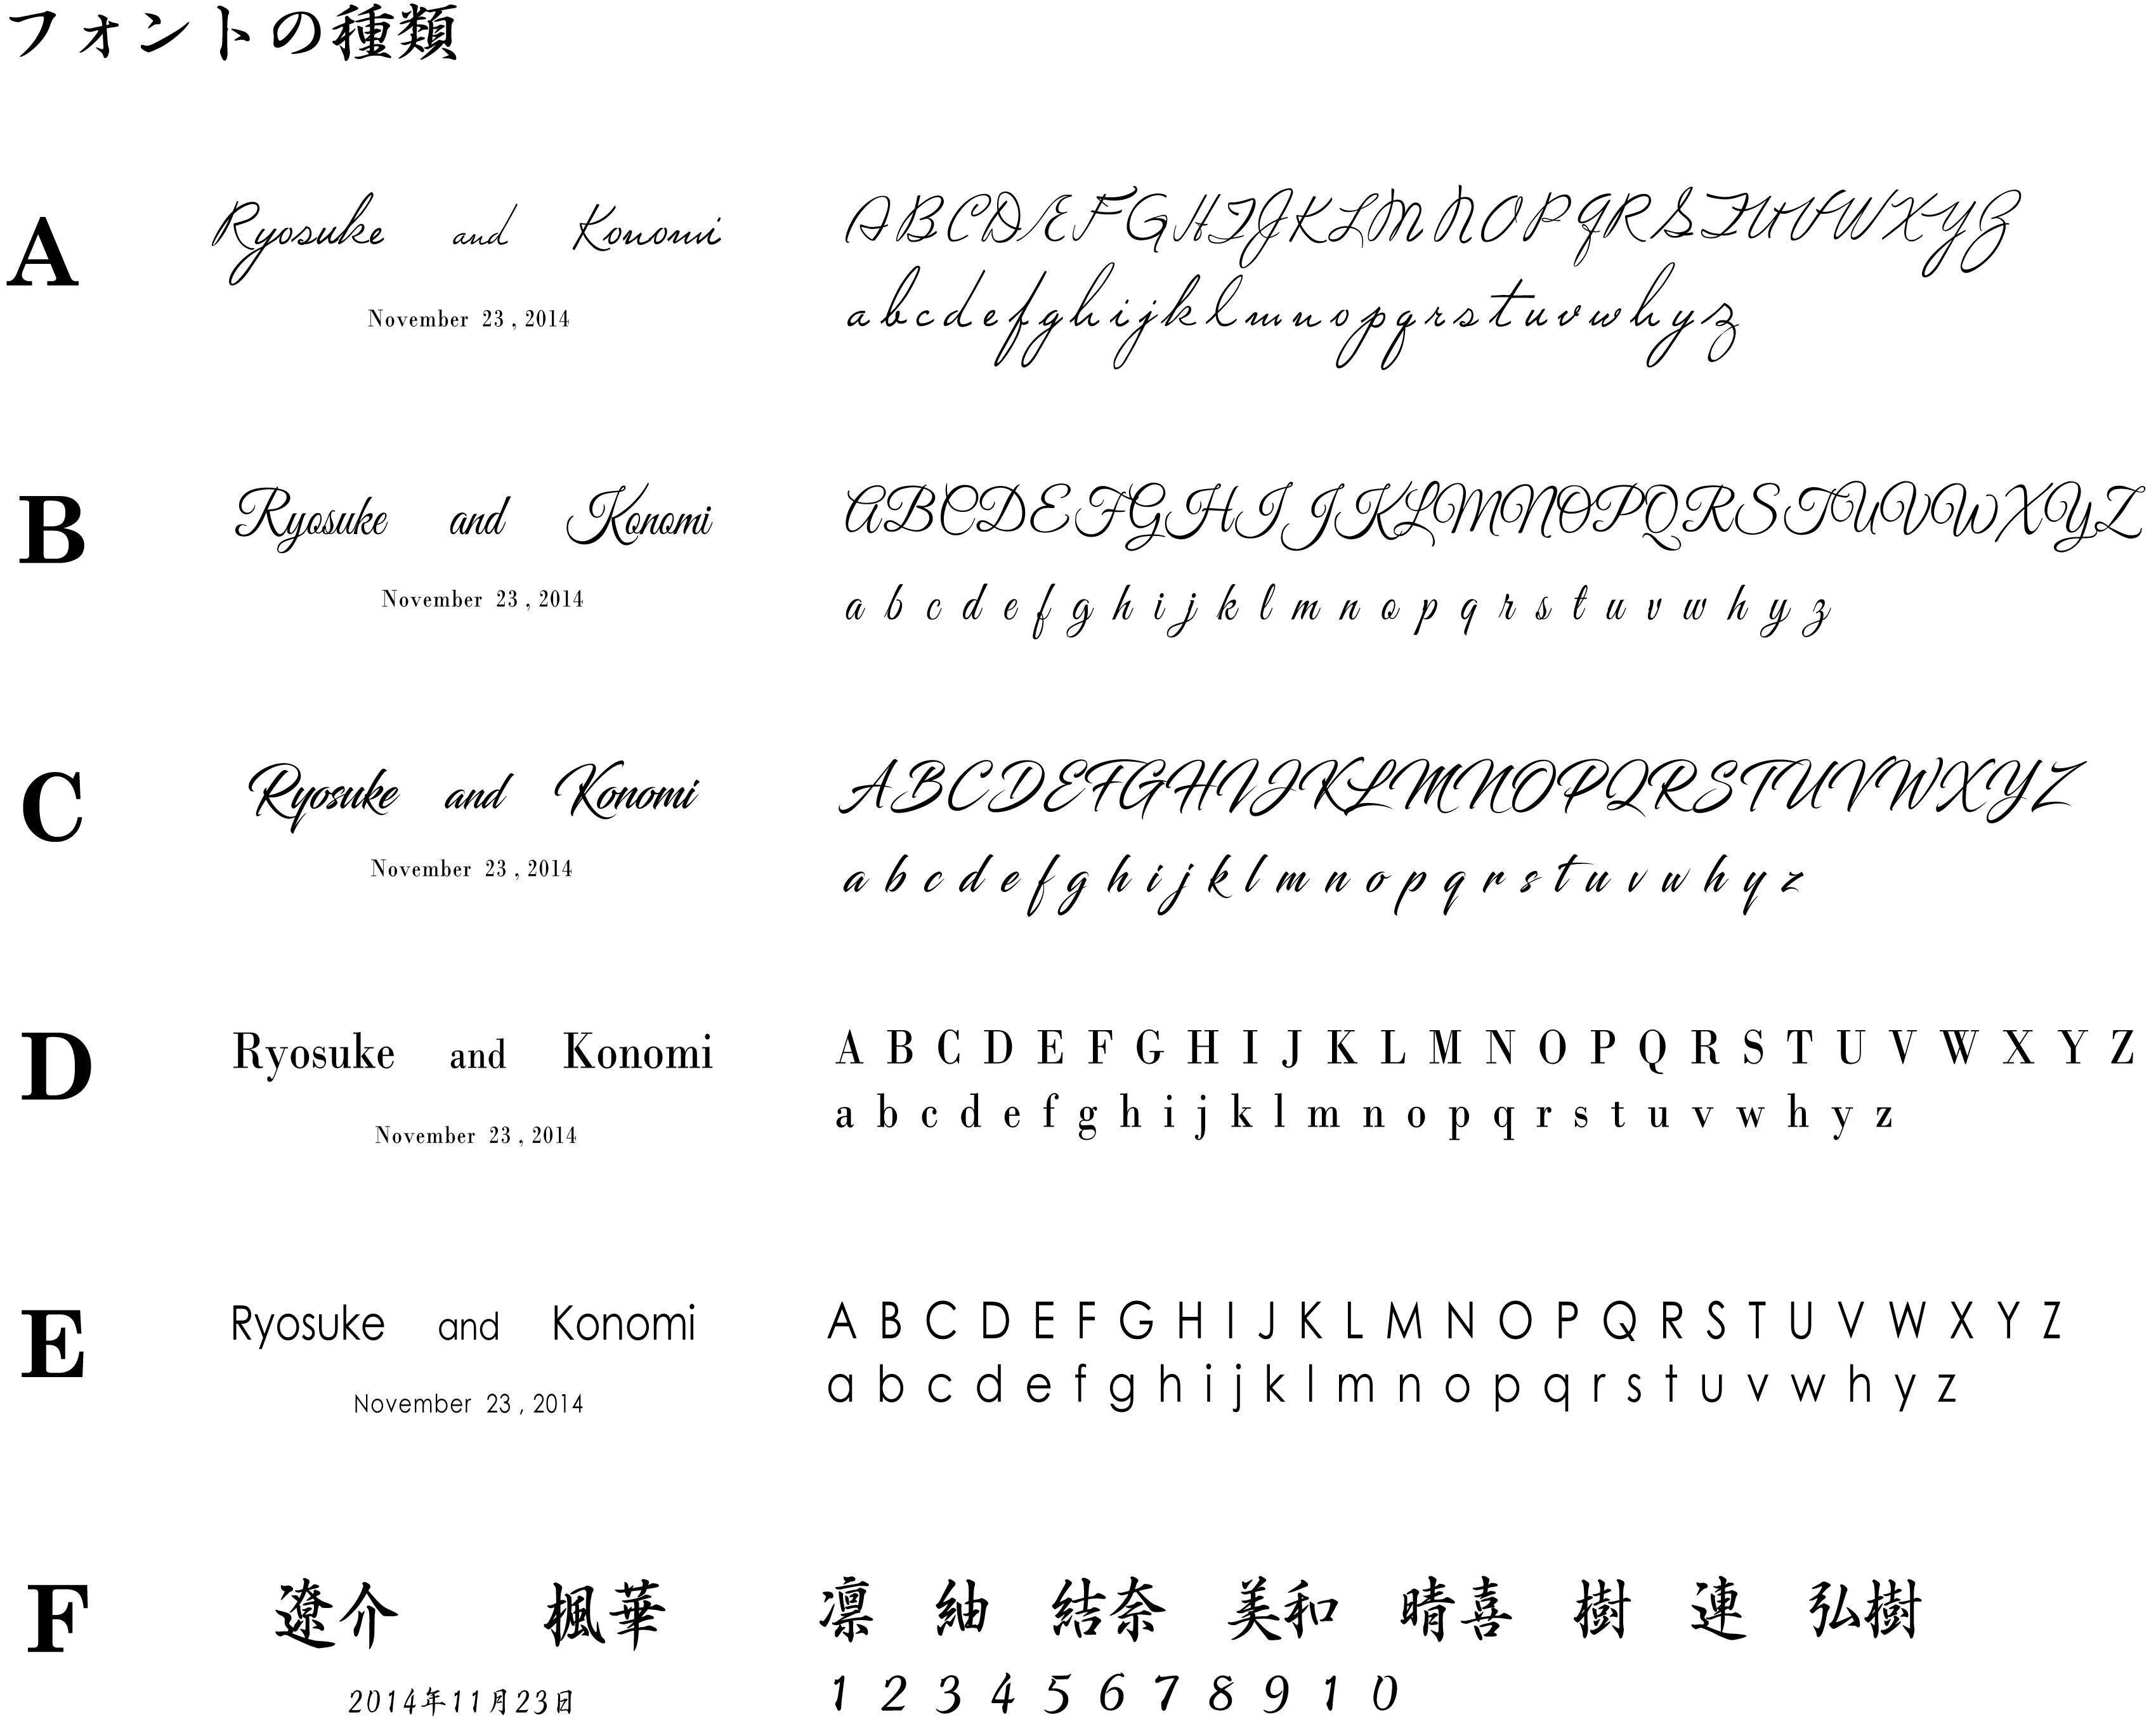 フォントの種類
A
Ryosuke and Konomi
November 23 , 2014
ABCDEFGHIJKLMNOPQRSTUVWXYZ
abcdefghijklmnopqrstuvwhyz
B
Ryosuke and Konomi
November 23 , 2014
ABCDEFGHIJKLMNOPQRSTUVWXYZ
a b c d e f g h i j k l m n o p q r s t u v w h y z
C
Ryosuke and Konomi
November 23 , 2014
ABCDEFGHIJKLMNOPQRSTUVWXYZ
a b c d e f g h i j k l m n o p q r s t u v w h y z
D
Ryosuke and Konomi
November 23 , 2014
A B C D E F G H I J K L M N O P Q R S T U V W X Y Z
a b c d e f g h i j k l m n o p q r s t u v w h y z
E
Ryosuke and Konomi
November 23 , 2014
A B C D E F G H I J K L M N O P Q R S T U V W X Y Z
a b c d e f g h i j k l m n o p q r s t u v w h y z
F
遼介 楓華
2014年11月23日
凛 紬 結奈 美和 晴喜 樹 連 弘樹
1 2 3 4 5 6 7 8 9 1 0